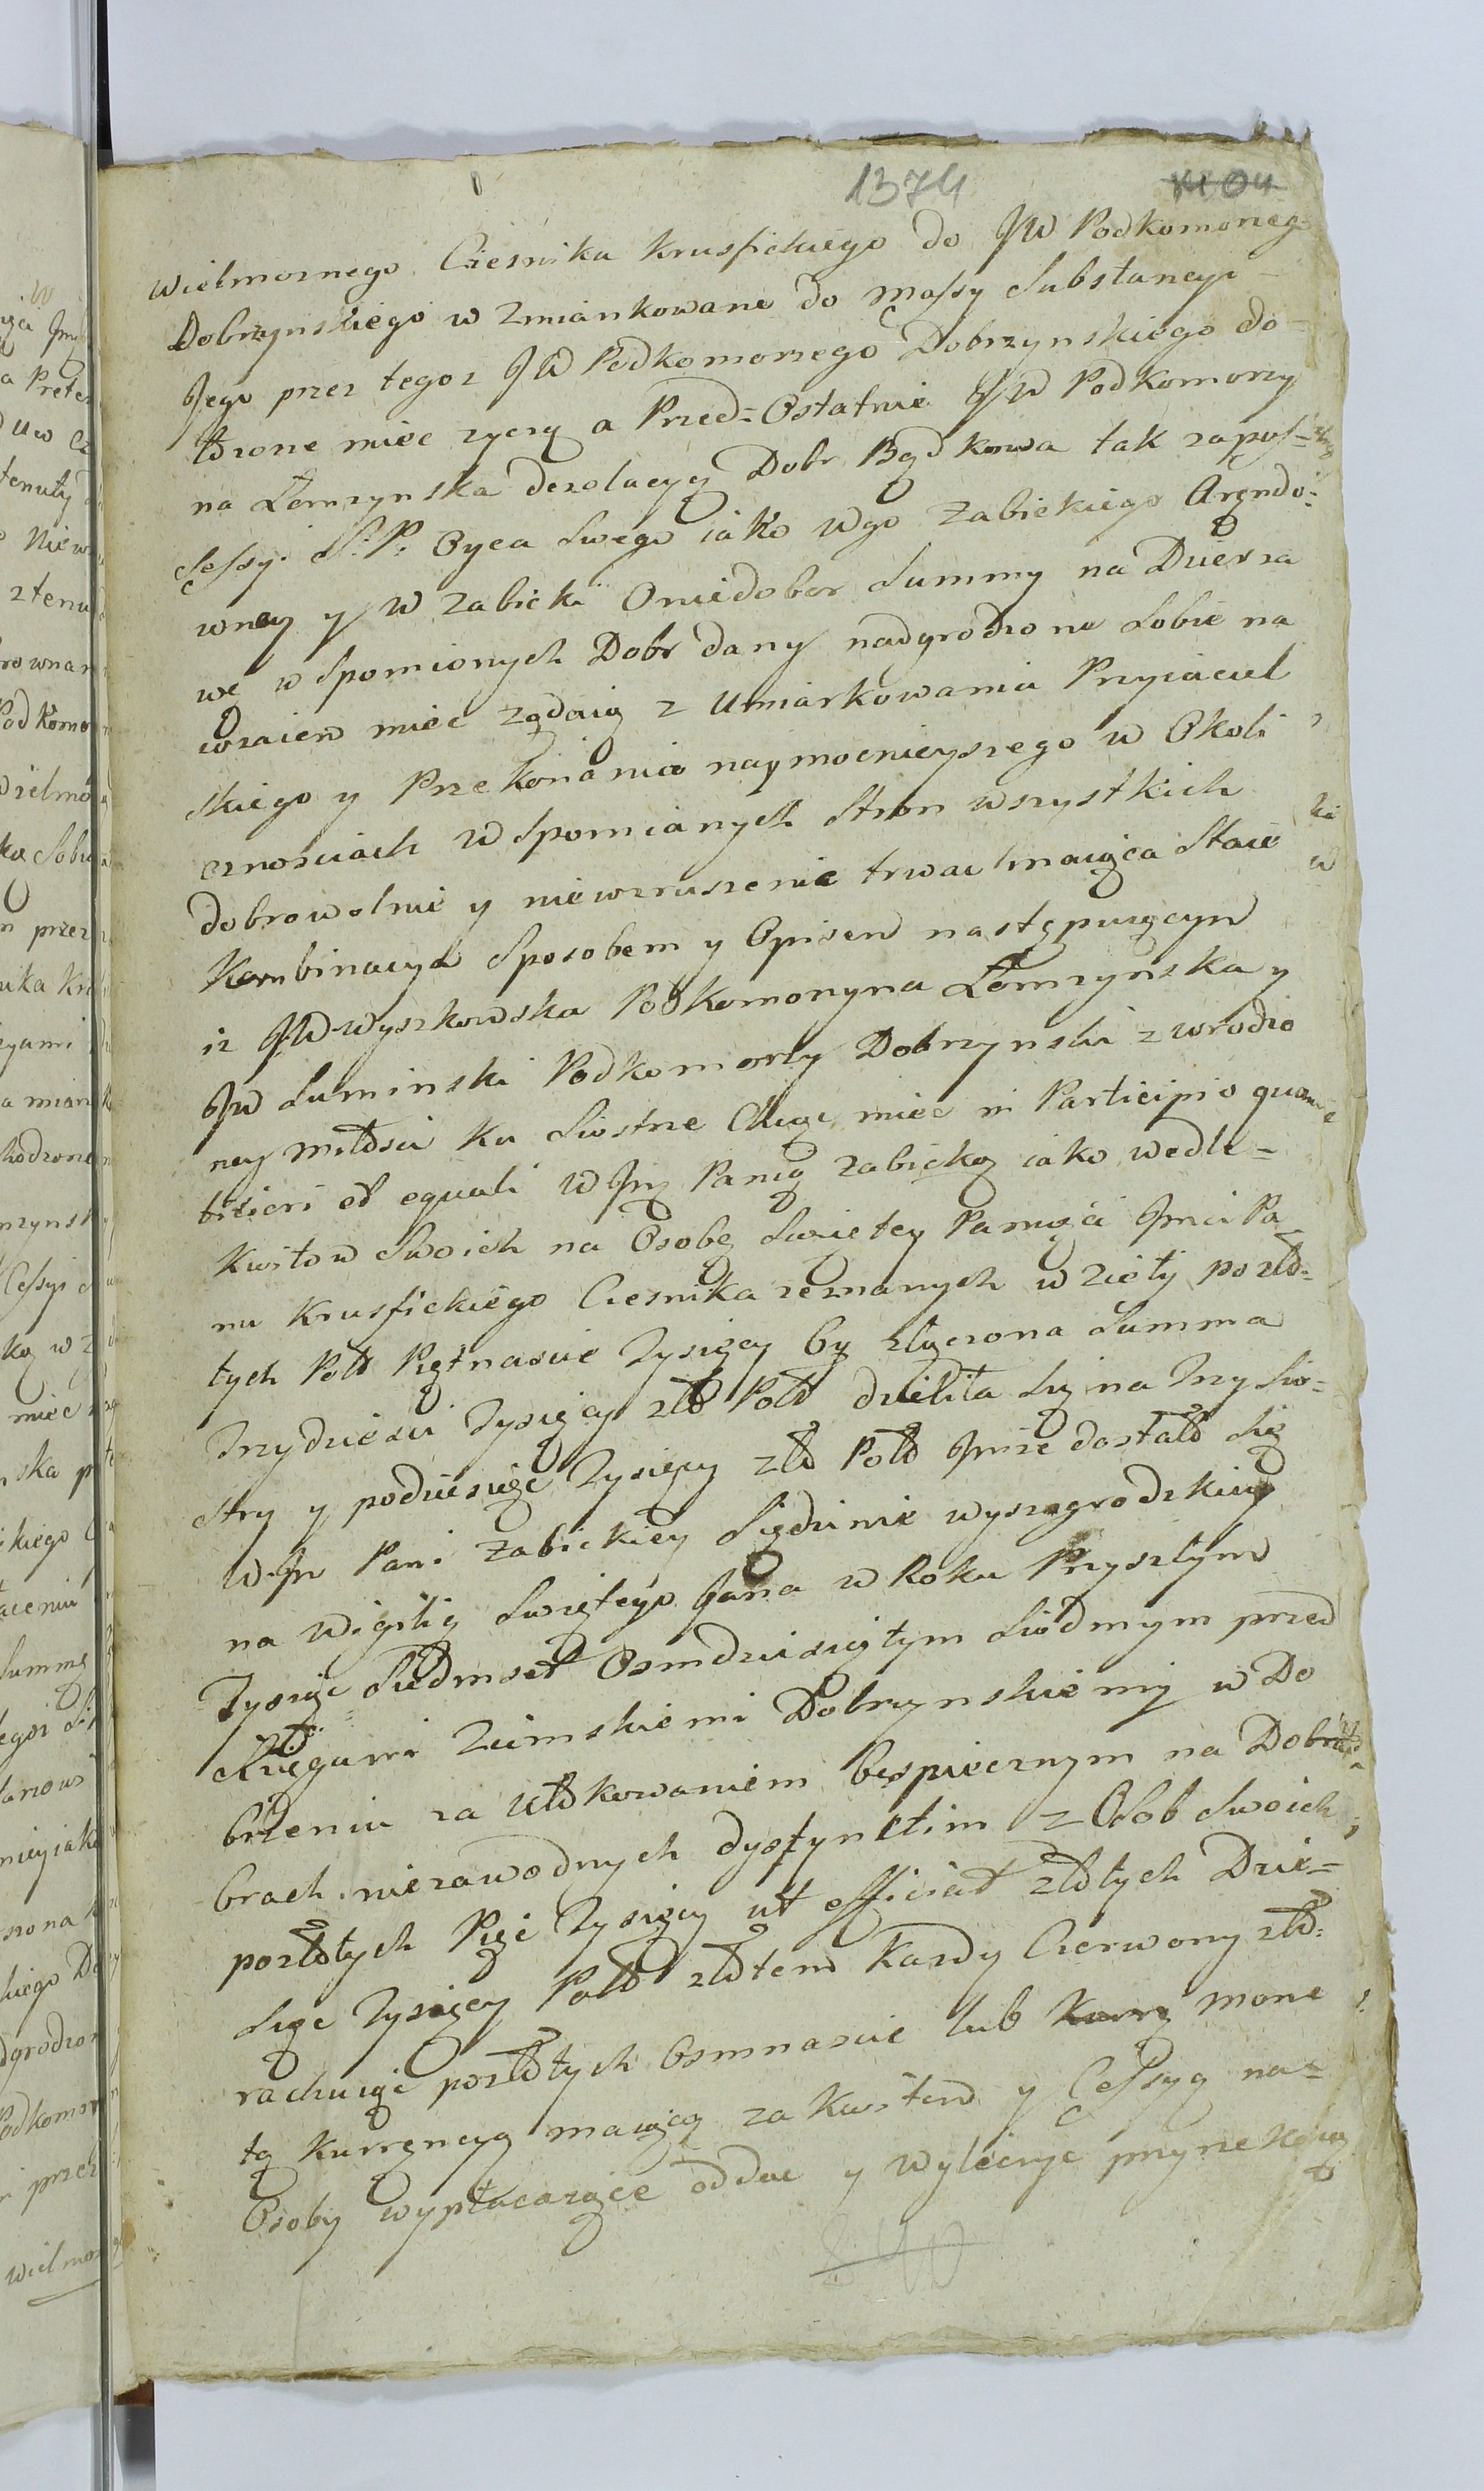 1374
Wielmoznego Czesnika Krusfickiego do JW Podkomorzeg
Dobrzynskiego w zmiankowane do Massy Substancyi
Jego przez tegoz JW Podkomorzego Dobrzynskiego do
łzone miec zyczy a Przed=Ostatnie JW Podkomorzy
na Łomzynska dezolacyą Dobr Bądkowa tak za
Cessyi S: P: Oyca Swego iako Wgo Zabickiego Arędo:
wney y W Zabicki Oniedobor Summy na Dzierza
wę w Spomionych Dobr dany nadgrodzone Sobie na
wzaiem miec ządaią z Umiarkowania Przyiaciel
skiego y Przekonania naymocnieyszego w Okoli
cznosciach w Spomianych Stron wszystkich
dobrowolnie y niewzruszenie trwac maiąca Staie
Kombinacya Sposobem y Opisem następuiącym
iz JW Wyszkowska Podkomorzyna Łomzynska y
JW Suminski Podkomorzy Dobrzynski z wrodzo
ney miłosci ku Siostrze Chcąc miec in Participio quan
titieri et equali WJP Panią Zabicką iako wedle=
kwitow Swoich na Osobę Swietey Pamęci Jmci Pa
na Krusfickiego Czesnika zeznanych wzieły pozło=
tych Pols Piętnascie Tysięcy by złączona Summa
Trzydziesci Tysięcy zło Pols dzieliła Się na Trzy Sio=
stry y podziesięc Tysięcy zło Pols dostało Się
WJP Pani Zabickiey Sędzinie Wyszogrodzkiey
na Wigilię Swiętego Jana w Roku Przyszłym
Tysiąc Siedmset Osmdziesiątym Siodmym przed
Xięgami Ziemskiemi Dobrzynskiemi w Do
brzeniu za ulokowaniem bespiecznym na Dob
brach niezawodnych dystynctim z Osob Swoich
pozłotych Pięc Tysięcy ut efficiat złotych Dzie=
sięc Tysięcy Pols złotem Kazdy Czerwony zło:
rachuiąc pozłotych Osmnascie lub mone
tą Kurręncyą maiącą za kwitem y Cessyą na=
Osoby wypłacaiące oddac y wyliczyc przyrzekaią